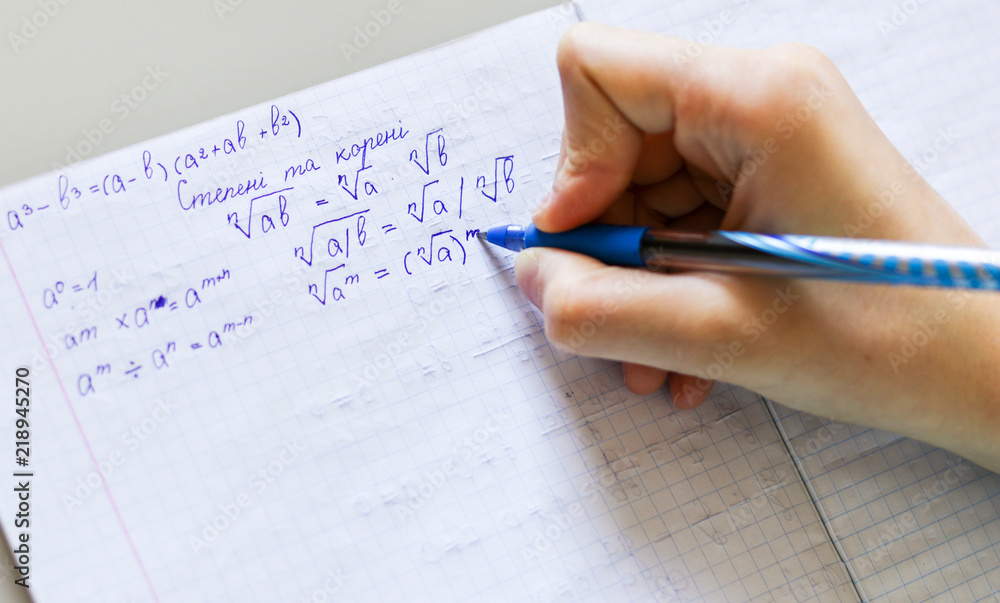 a³ - b³ = (a - b)(a² + ab + b²)
Степені та корені
ⁿ√ab = ⁿ√a · ⁿ√b
ⁿ√a/b = ⁿ√a / ⁿ√b
ⁿ√aᵐ = (ⁿ√a)ᵐ
a⁰ = 1
am × aⁿ = aᵐ⁺ⁿ
aᵐ ÷ aⁿ = aᵐ⁻ⁿ
Adobe Stock | #218945270